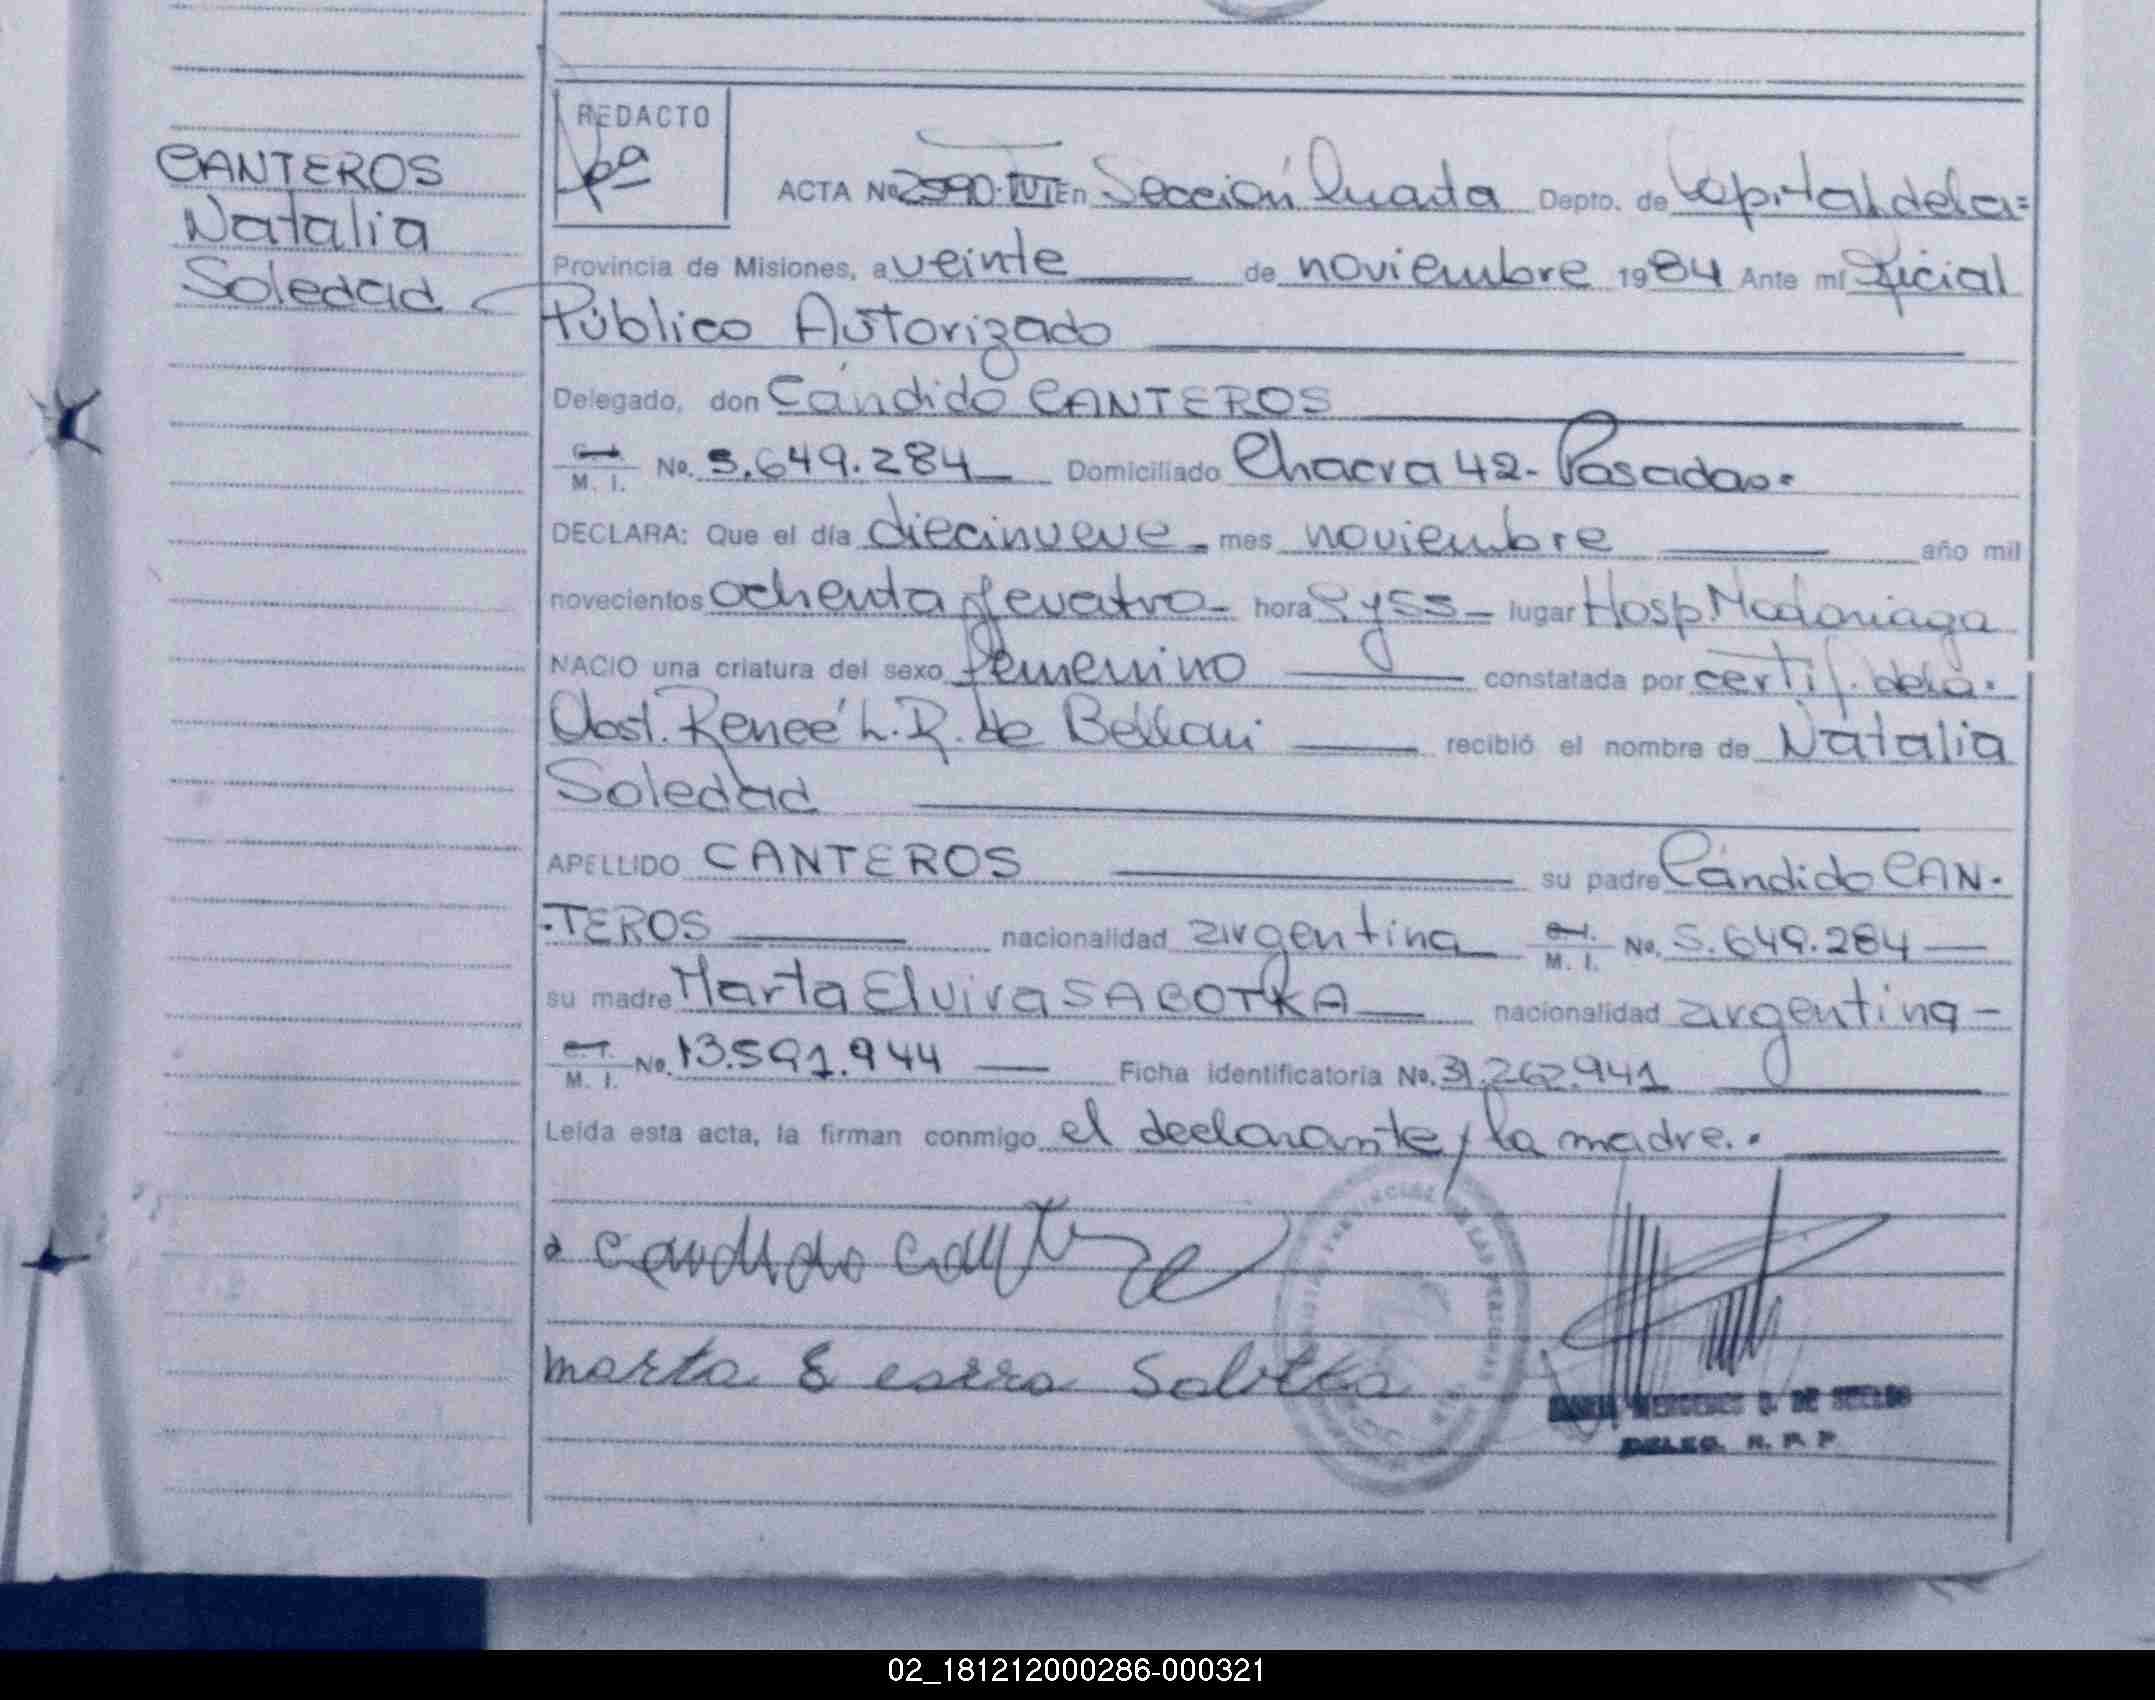 CANTEROS
Natalia
Soledad
REDACTO
ACTA No 2590. En Sección Cuarta Depto. de Capital, de la=
Provincia de Misiones, a veinte de noviembre 1984 Ante mí Oficial
Público Autorizado
Delegado, don Cándido CANTEROS
M. I. No. 5.649.284 Domiciliado Chacra 42- Posadas.
DECLARA: Que el día diecinueve - mes noviembre año mil
novecientos ochenta y cuatro - hora 9 y 55 - lugar Hosp. Madariaga
NACIO una criatura del sexo femenino constatada por certif. de la.
Obst. Reneé L. R. de Bellani recibió el nombre de Natalia
Soledad
APELLIDO CANTEROS su padre Cándido CAN.
.TEROS nacionalidad argentina M. I. No. 5.649.284
su madre Marta Elvira SABOTKA nacionalidad argentina -
M. I. No. 13.591.944 Ficha identificatoria No. 31.262.941
Leída esta acta, la firman conmigo el declarante y la madre. .
candido
marta E
MERCEDES DE
DELEG. R. P. P
02_181212000286-000321